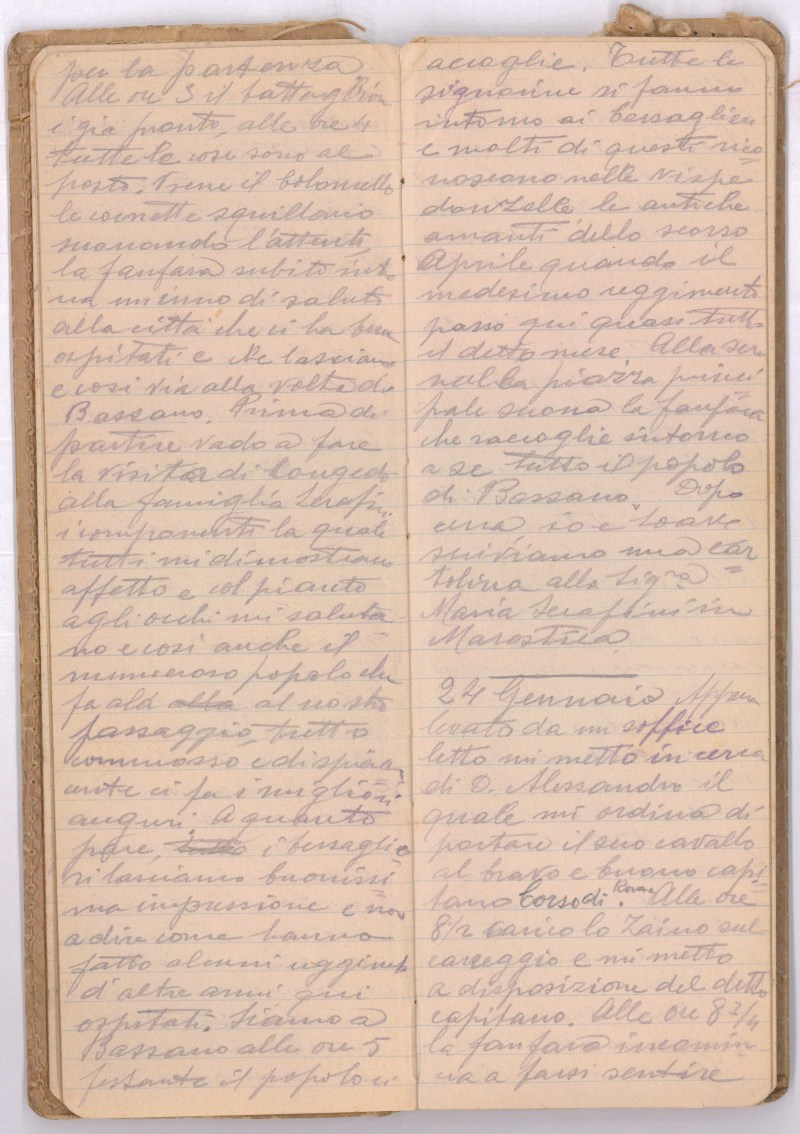 per la partenza
Alle ore 3 il battaglion
è già pronto, alle ore 4
tutte le cose sono al
posto. Viene il Colonnello
le cornette squillano
suonando l'attenti,
la fanfara subito into
na un inno di saluto
alla città che ci ha bene
ospitati e che lasciamo
e così via alla volta di
Bassano. Prima di
partire vado a fare
la visita di Congedo
alla famiglia Serafini
i componenti la quale
tutti mi dimostrano
affetto e col pianto
agli occhi mi saluta
no e così anche il
numeroso popolo che
fa ala alla al nostro
passaggio, tutto
commosso e dispia
cente ci fa i migliori
auguri. A quanto
pare, tutto i bersaglie
ri lasciamo buonissi=
ma impressione e non
a dire come hanno
fatto alcuni reggimenti
d'altre armi qui
ospitati. Siamo a
Bassano alle ore 5
festante il popolo ci
accoglie. Tutte le
signorine si fanno
intorno ai bersaglieri
e molti di questi rico=
noscono nelle vispe
donzelle le antiche
amanti dello scorso
Aprile quando il
medesimo reggimento
passò qui quasi tutto
il detto mese. Alla sera
nella piazza princi=
pale suona la fanfara
che raccoglie intorno
a se tutto il popolo
di Bassano. Dopo
cena io e Soave
scriviamo una car=
tolina alla Sigra
Maria Serafini in
Marostica.
24 Gennaio Appena
levato da un soffice
letto mi metto in cerca
di D. Alessandro il
quale mi ordina di
portare il suo cavallo
al bravo e buono capi=
tano Corso di Roma. Alle ore
8 1/2 carico lo Zaino sul
carreggio e mi metto
a disposizione del detto
capitano. Alle ore 8 3/4
la fanfara incomin
cia a farsi sentire